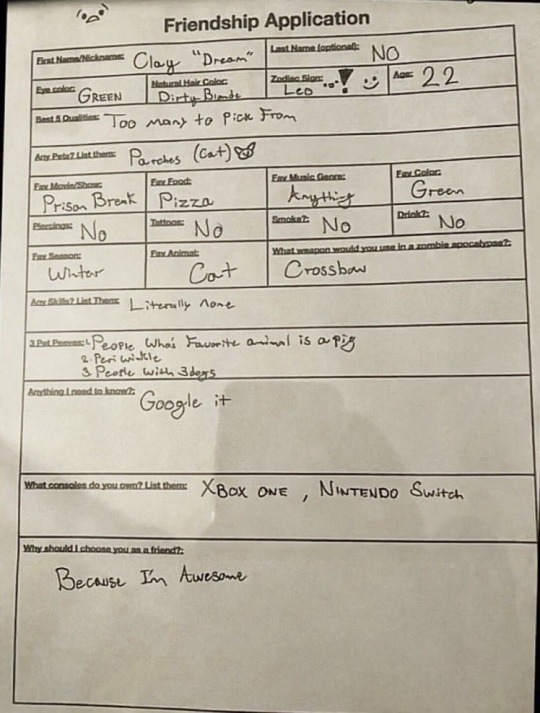 Friendship Application
First Name/Nickname: Clay "Dream" Last Name (optional): NO
Eye color: GREEN Natural Hair Color: Dirty Blonde Zodiac Sign: Leo Age: 22
Best 5 Qualities: Too many to Pick From
Any Pets? List them: Patches (Cat)
Fav Movie/Show: Prison Break Fav Food: Pizza Fav Music Genre: Anything Fav Color: Green
Piercings: No Tattoos: No Smoke?: No Drink?: No
Fav Season: Winter Fav Animal: Cat What weapon would you use in a zombie apocalypse?: Crossbow
Any Skills? List Them: Literally none
3 Pet Peeves: 1. People Who's Favorite animal is a pig
2. Periwinkle
3. People with 3 dogs
Anything I need to know?: Google it
What consoles do you own? List them: XBOX ONE, NINTENDO Switch
Why should I choose you as a friend?:
Because I'm Awesome